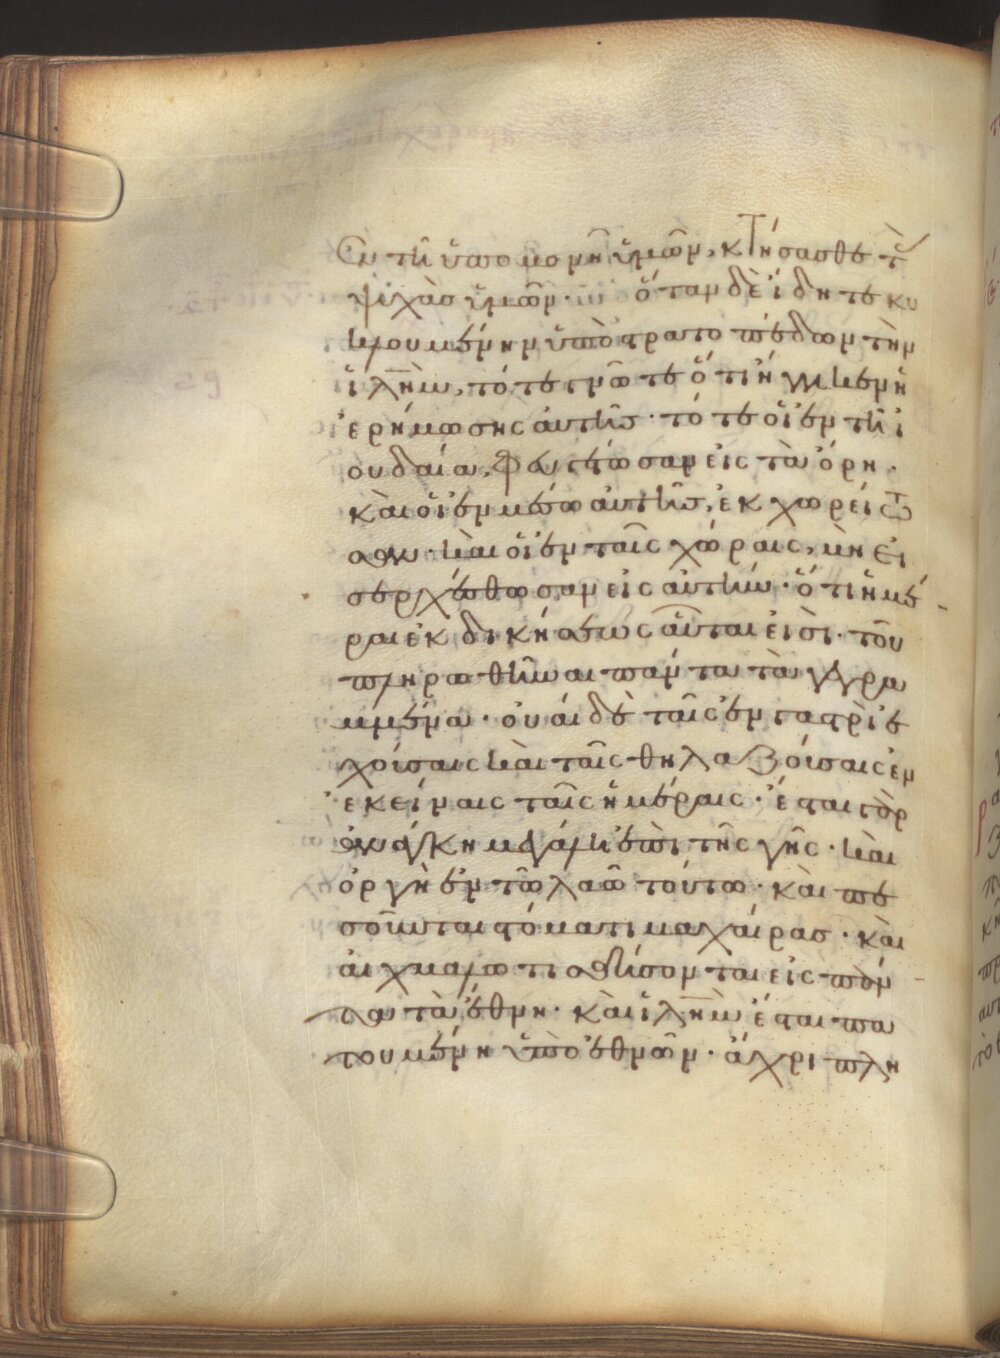 Ἐν τῆ ὑπομονῆ ὑμῶν, κτήσασθε τ̀
ψιχὰσ ὑμῶν · ὅταν δὲ ἴδητε κυ
κλουμένην ὑπὸ στρατοπέδων τὴν
ἱλὴμ, τότε γνῶτε ὅτι ἤγγικεν ἡ
ἐρήμωσης αὐτῆς · τότε οἱ ἐν τῆ ἰ
ουδαία, φευγέτωσαν εἰς τὰ ὄρη ·
καὶ οἱ ἐν μέσω αὐτῆς, ἐκχωρείτω
σαν · καὶ οἱ ἐν ταῖς χώραις, μὴ εἰ
σερχέσθωσαν εἰς αὐτήν · ὅτι ἡμέ
ραι ἐκδικήσεως αὗται εἰσὶ · τοῦ
πληρωθῆναι πάντα τὰ γεγρα
μμένα · οὐαὶ δὲ ταῖς ἐν γαστρὶ ἐ
χούσαις καὶ ταῖς θηλαζούσαις ἐν
ἐκείναις ταῖς ἡμέραις · ἔσται γὰρ
ἀνάγκη μεγάλη ἐπὶ τῆς γῆς · καὶ
ὀργὴ ἐν τῶ λαῶ τούτω · καὶ πε
σοῦνται στόματι μαχαίρασ · καὶ
αἰχμαλωτισθήσονται εἰς πάν
τα τὰ ἔθνη · καὶ ἱλὴμ ἔσται πα
τουμένη ὑπὸ ἐθνῶν · ἄχρι πλη